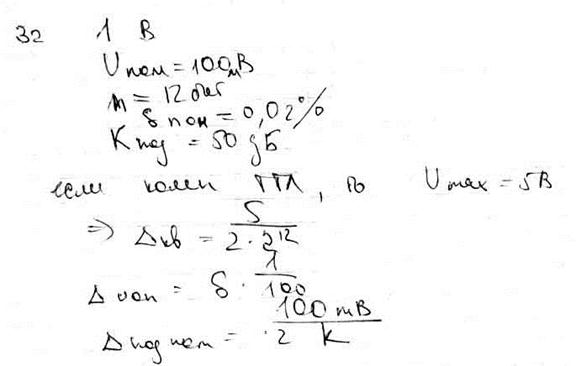 32 1 В
Uпом = 100мВ
n = 12 бит
δ пон = 0,02%
K под = 50 дБ
если комп ТТЛ, то U max = 5В
⇒ Δкв = 5 / 2 · 2^12
Δ = δ · 1 / 100
Δ под пом = 100 mВ / · 2 K